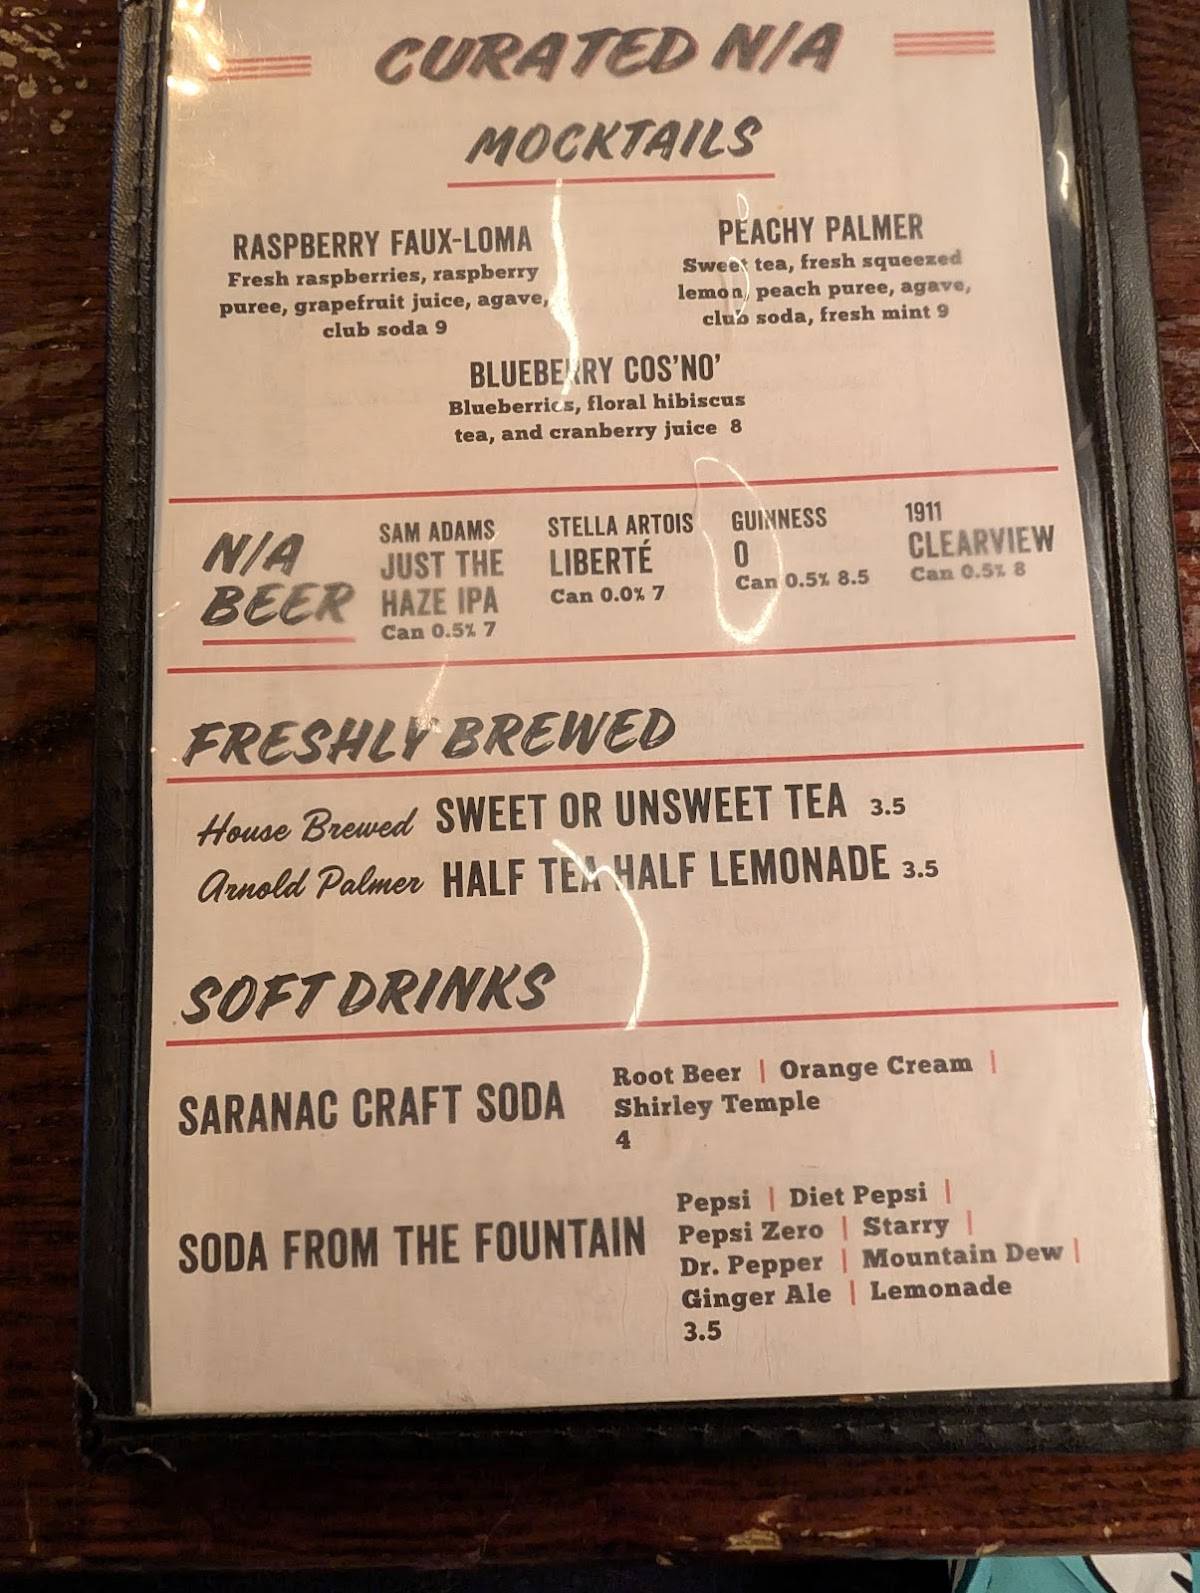 CURATED N/A
MOCKTAILS
RASPBERRY FAUX-LOMA
Fresh raspberries, raspberry
puree, grapefruit juice, agave,
club soda 9
PEACHY PALMER
Sweet tea, fresh squeezed
lemon, peach puree, agave,
club soda, fresh mint 9
BLUEBERRY COS'NO'
Blueberries, floral hibiscus
tea, and cranberry juice 8
N/A
BEER
SAM ADAMS
JUST THE
HAZE IPA
Can 0.5% 7
STELLA ARTOIS
LIBERTÉ
Can 0.0% 7
GUINNESS
0
Can 0.5% 8.5
1911
CLEARVIEW
Can 0.5% 8
FRESHLY BREWED
House Brewed SWEET OR UNSWEET TEA 3.5
Arnold Palmer HALF TEA HALF LEMONADE 3.5
SOFT DRINKS
SARANAC CRAFT SODA
Root Beer | Orange Cream |
Shirley Temple
4
SODA FROM THE FOUNTAIN
Pepsi | Diet Pepsi |
Pepsi Zero | Starry |
Dr. Pepper | Mountain Dew |
Ginger Ale | Lemonade
3.5